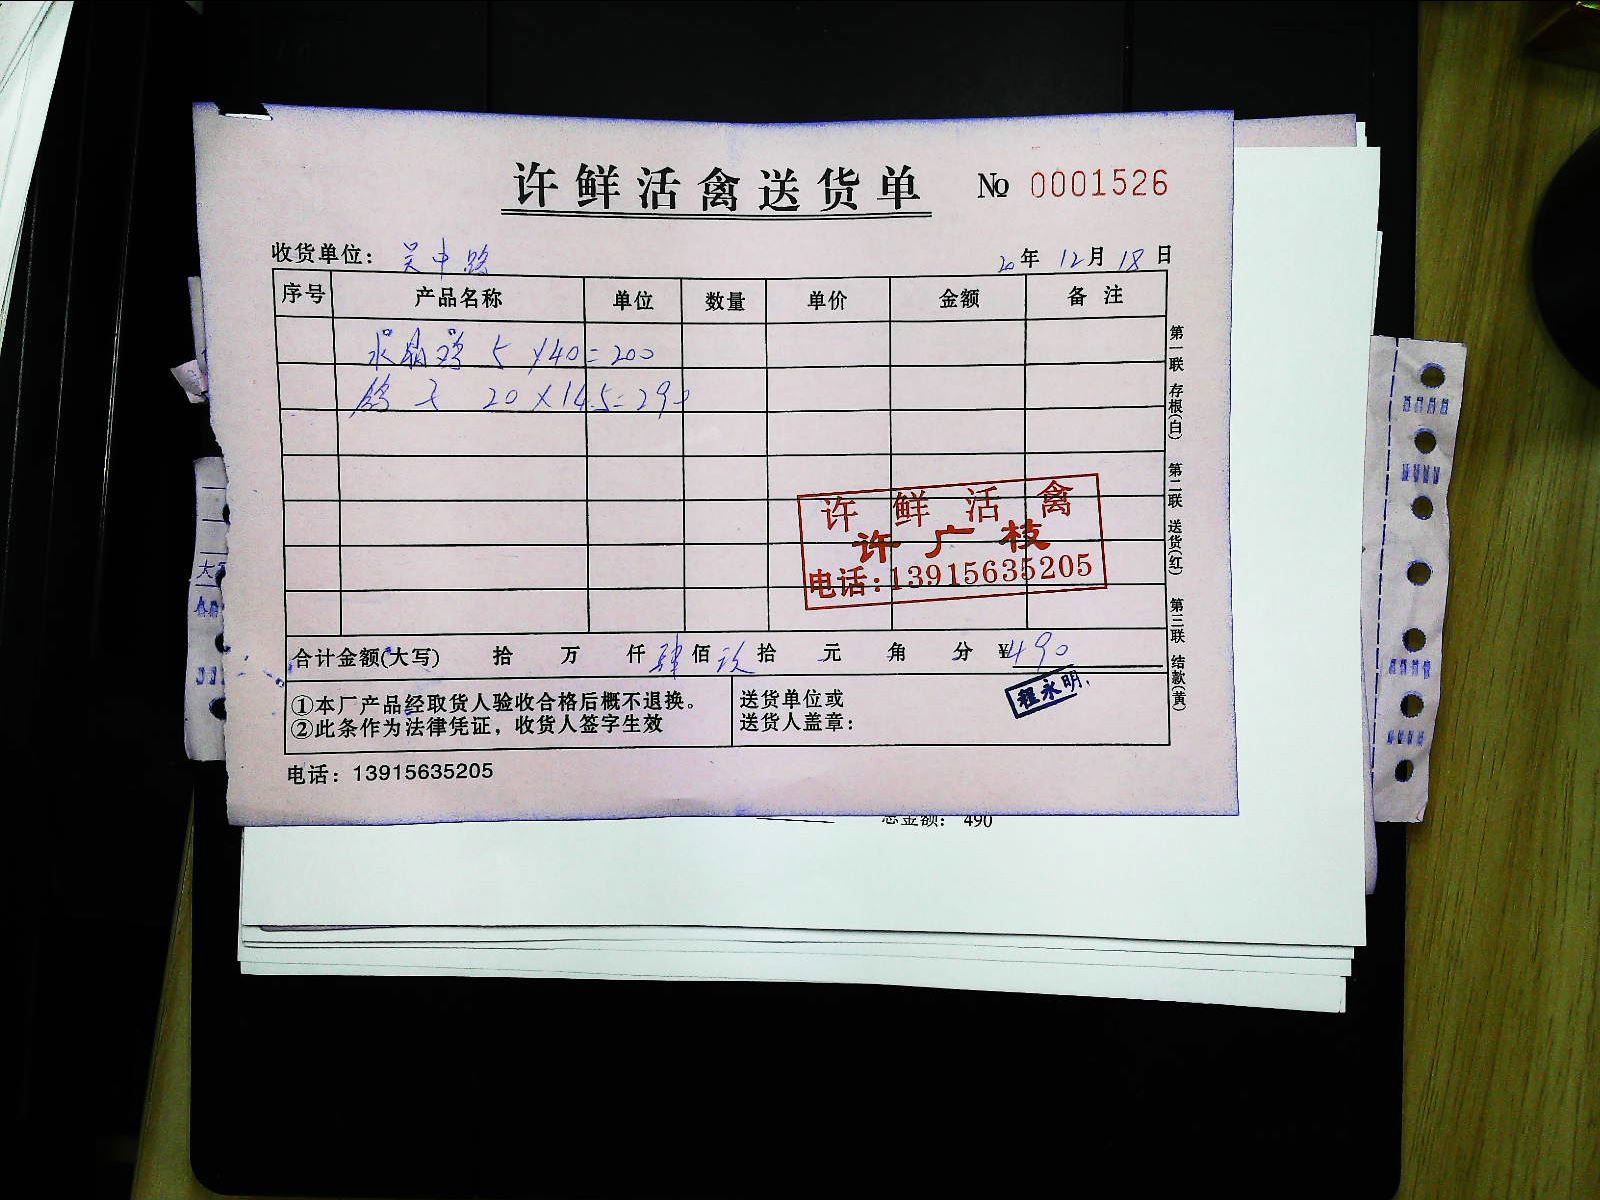 许鲜活禽送货单 № 0001526
收货单位：吴中路 20年12月18日
序号 产品名称 单位 数量 单价 金额 备注
5×40=200
鸽子 20×14.5=290
许鲜活禽
许广枝
电话：13915635205
合计金额(大写) 拾 万 仟肆佰玖拾 元 角 分 ¥490
①本厂产品经取货人验收合格后概不退换。
②此条作为法律凭证，收货人签字生效
送货单位或
送货人盖章：
程永明
电话：13915635205
第一联 存根(白) 第二联 送货(红) 第三联 结款(黄)
总金额： 490